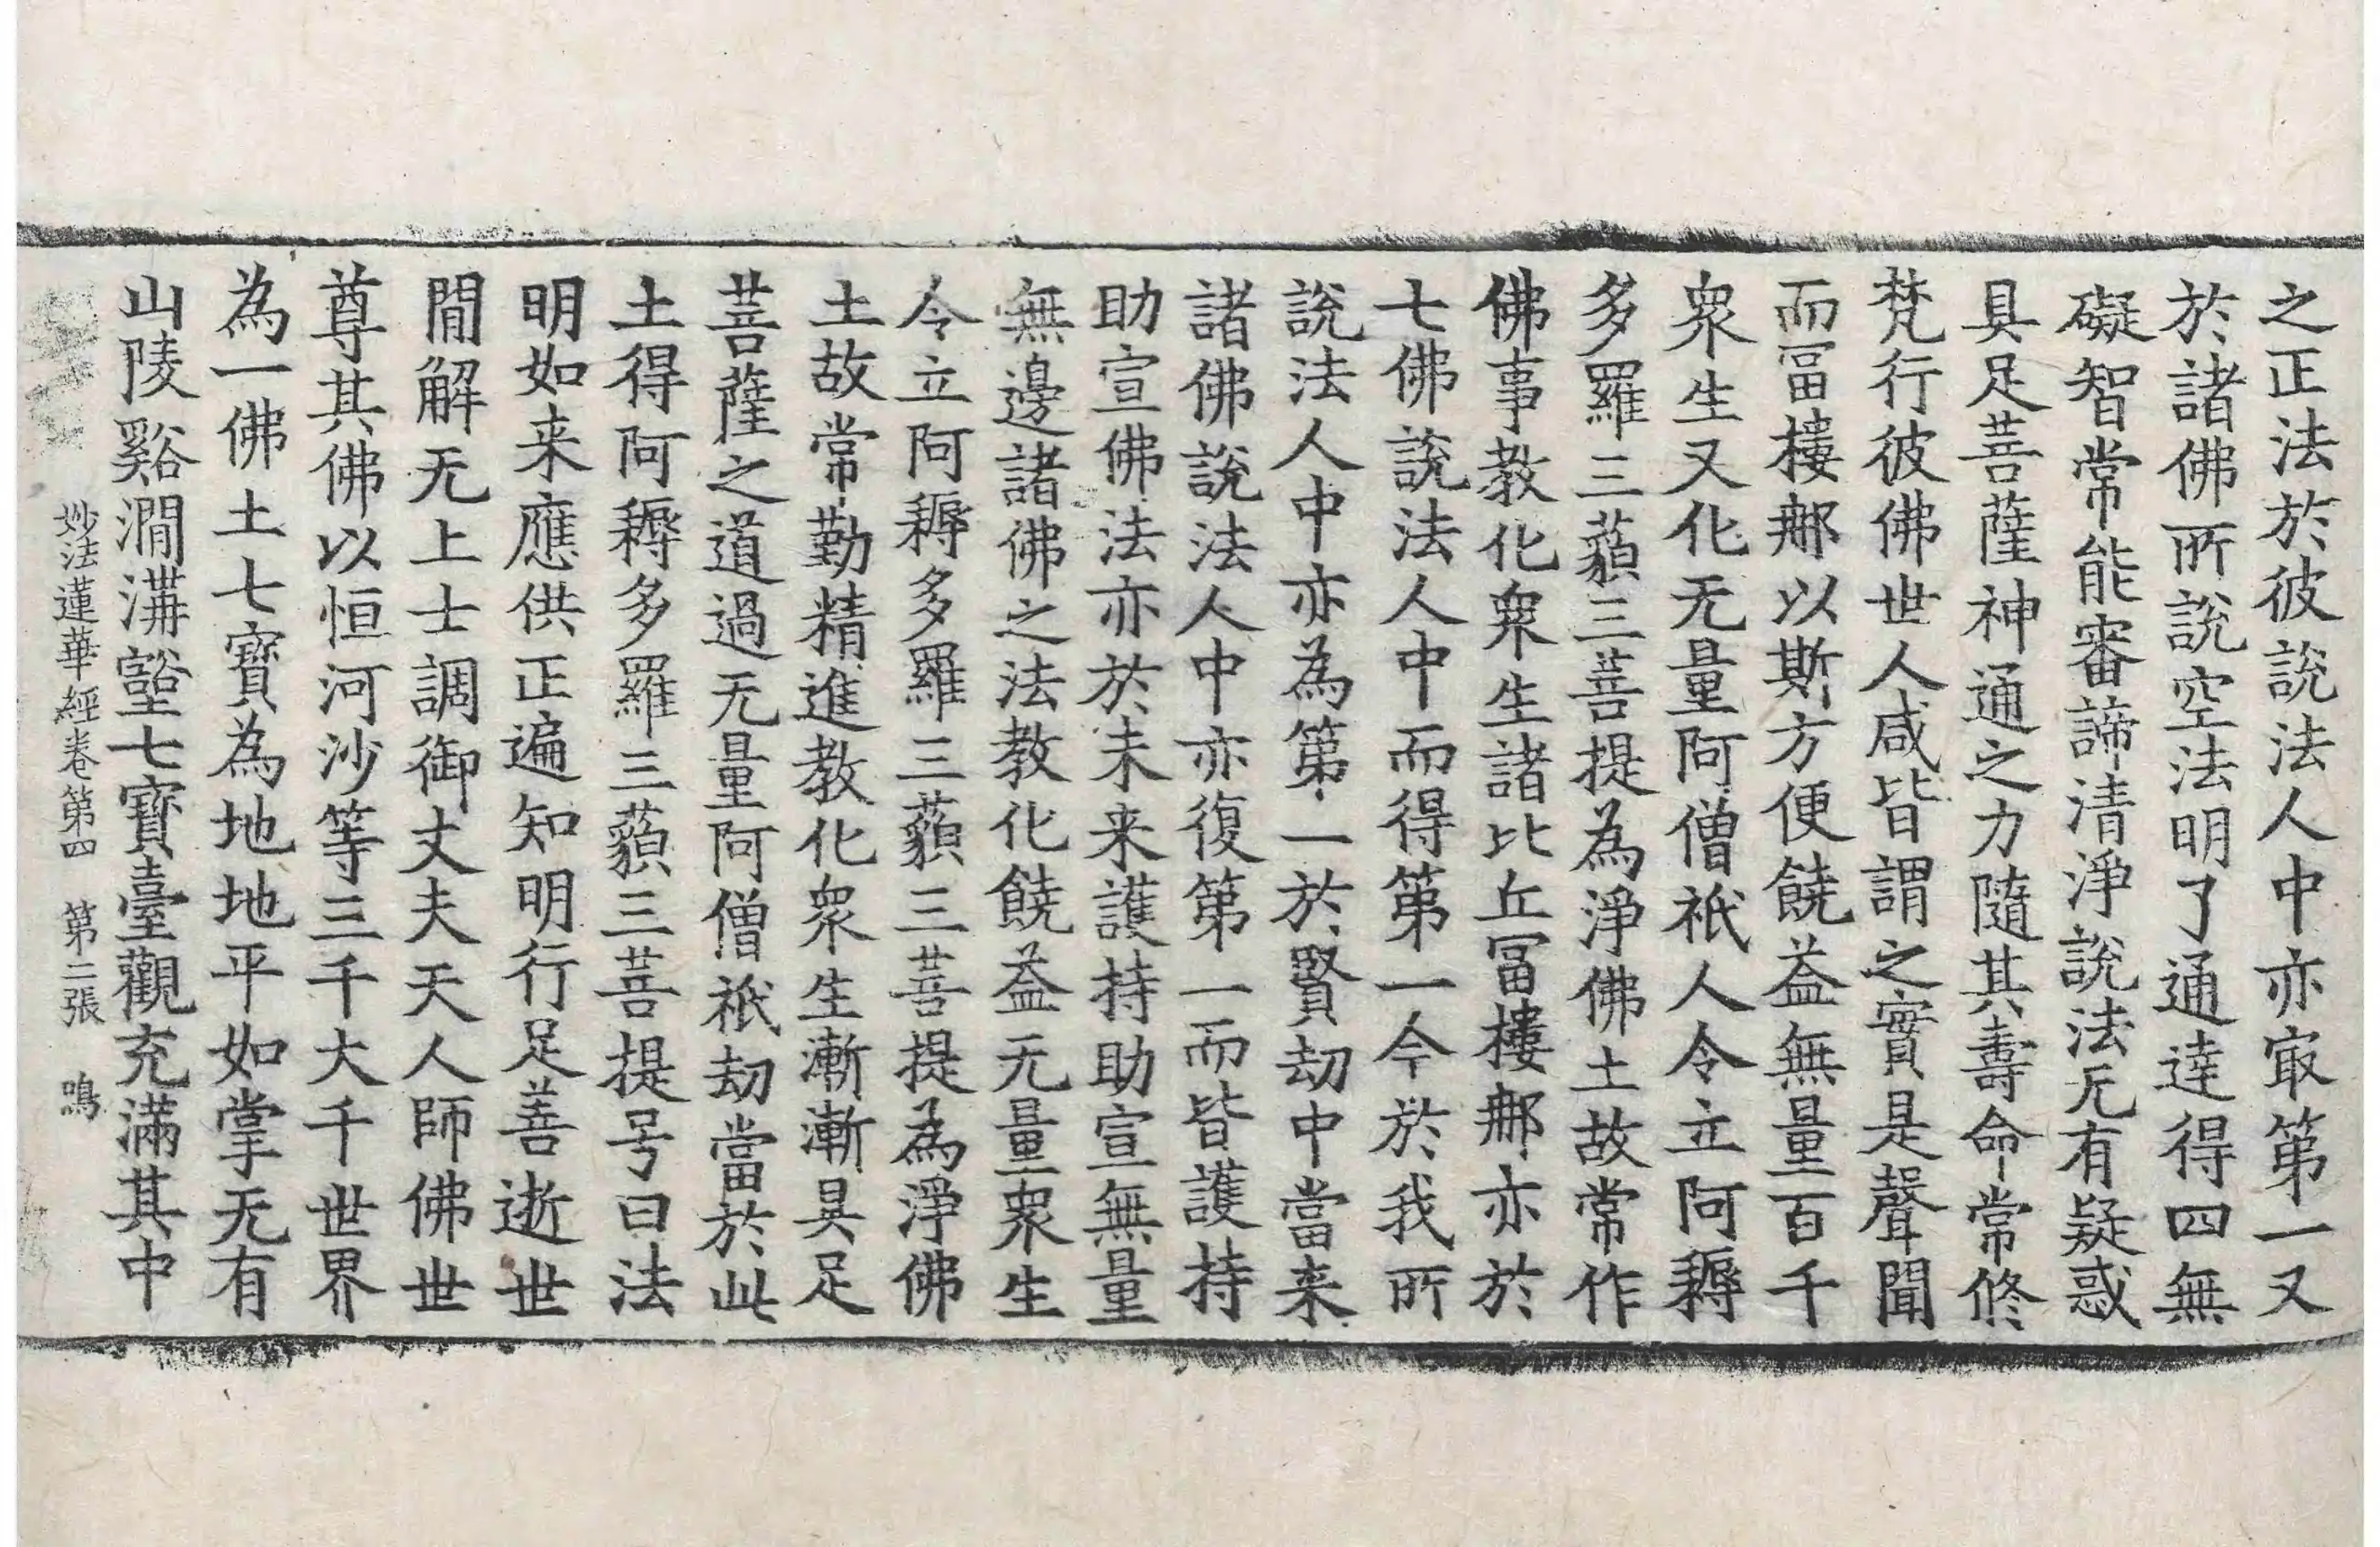 之正法於彼說法人中亦㝡第一又
於諸佛所說空法明了通達得四無
礙智常能審諦清淨說法无有疑惑
具足菩薩神通之力隨其壽命常修
梵行彼佛世人咸皆謂之實是聲聞
而冨樓那以斯方便饒益無量百千
衆生又化无量阿僧祇人令立阿耨
多羅三藐三菩提為淨佛土故常作
佛事教化衆生諸比丘冨樓那亦於
七佛說法人中而得第一今於我所
說法人中亦為第一於賢劫中當来
諸佛說法人中亦復第一而皆護持
助宣佛法亦於未来護持助宣無量
無邊諸佛之法教化饒益无量衆生
令立阿耨多羅三藐三菩提為淨佛
土故常勤精進教化衆生漸漸具足
菩薩之道過无量阿僧祇劫當於此
土得阿耨多羅三藐三菩提号曰法
明如来應供正遍知明行足善逝世
閒解无上士調御丈夫天人師佛世
尊其佛以恒河沙等三千大千世界
為一佛土七寶為地地平如掌无有
山陵谿澗溝壑七寶臺觀充滿其中
妙法蓮華經卷第四 第二張 鳴